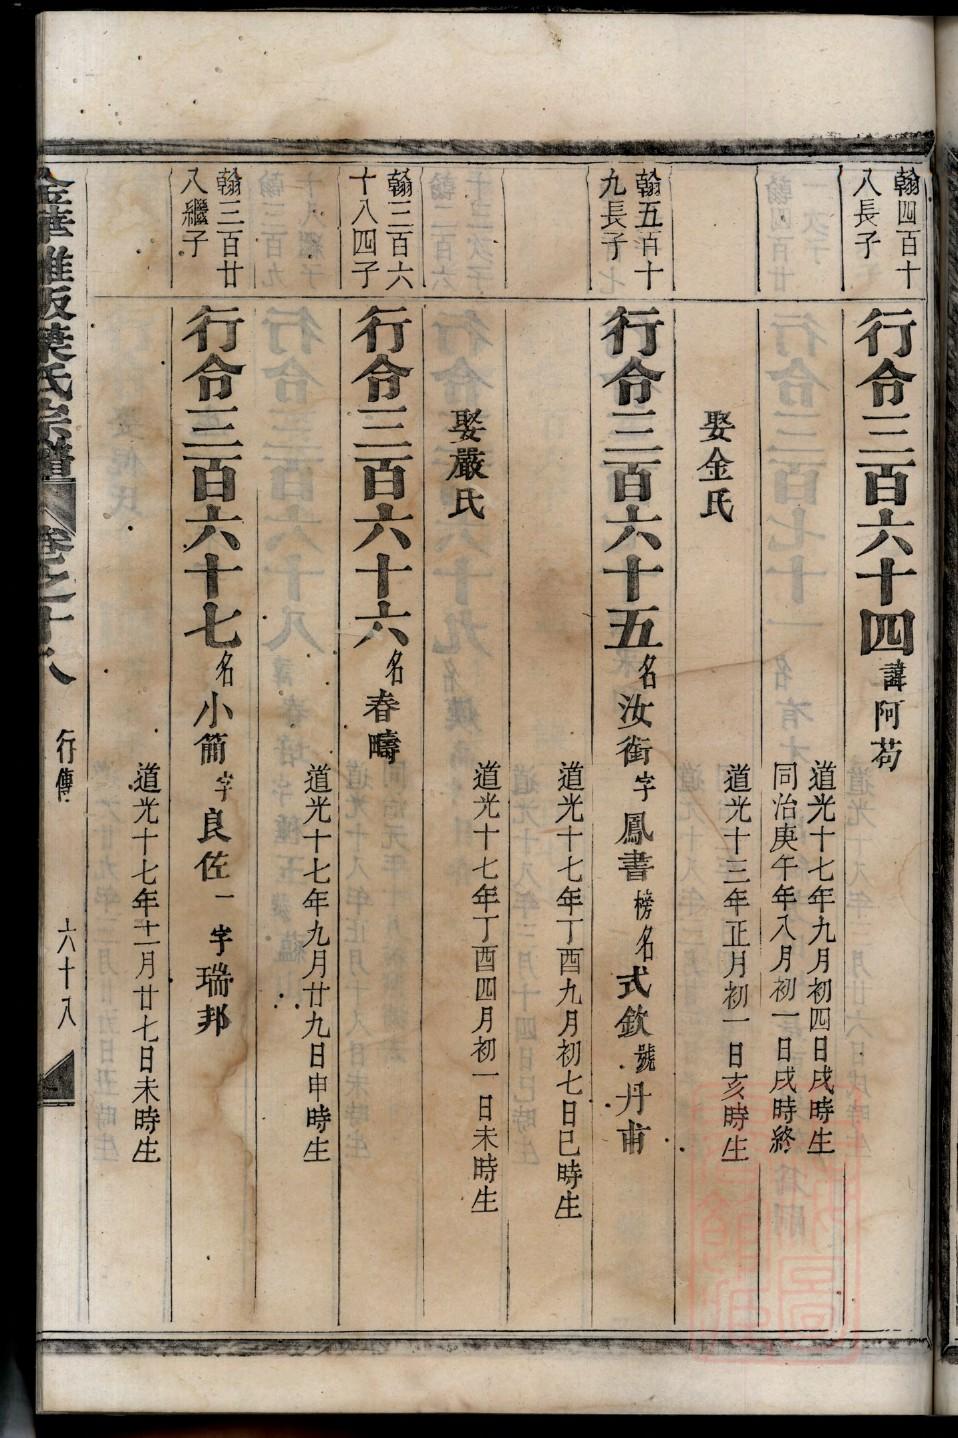 翰四百十
八長子
行令三百六十四諱阿苟
道光十七年九月初四日戌時生
同治庚午年八月初一日戌時終
娶金氏
道光十三年正月初一日亥時生
翰五百十
九長子
行令三百六十五名汝銜字鳳書榜名式欽號丹甫
道光十七年丁酉九月初七日巳時生
娶嚴氏
道光十七年丁酉四月初一日未時生
翰三百六
十八四子
行令三百六十六名春疇
道光十七年九月廿九日申時生
翰三百廿
八繼子
行令三百六十七名小簡字良佐一字瑞邦
道光十七年十一月廿七日未時生
金華雅畈葉氏宗譜 卷之十八 行傳 六十八